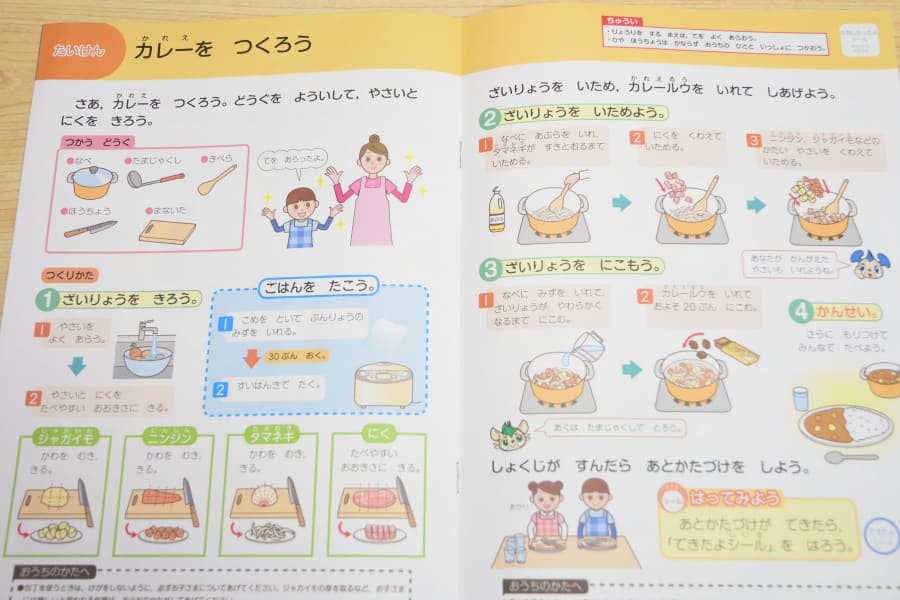 たいけん
かれえ
カレーを つくろう
かれえ
さあ，カレーを つくろう。どうぐを よういして，やさいと
にくを きろう。
つかう どうぐ
なべ
たまじゃくし
きべら
ほうちょう
まないた
てを あらったよ。
つくりかた
1 ざいりょうを きろう。
1 やさいを
よく あらう。
2 やさいと にくを
たべやすい おおきさに きる。
ごはんを たこう。
1 こめを といで ぶんりょうの
みずを いれる。
30ぷん おく。
2 すいはんきで たく。
じゃがいも
ジャガイモ
かわを むき，
きる。
にんじん
ニンジン
かわを むき，
きる。
たまねぎ
タマネギ
かわを むき，
きる。
にく
たべやすい
おおきさに きる。
おうちのかたへ
●包丁を使うときは，けがをしないように，必ずお子さまについてあげてください。ジャガイモの芽を取るなど，お子さま
ちゅうい
・りょうりを する まえは，てを よく あらおう。
・ひや ほうちょうは かならず おうちの ひとと いっしょに つかおう。
かれえるう
ざいりょうを いため，カレールウを いれて しあげよう。
2 ざいりょうを いためよう。
1 なべに あぶらを いれ，
たまねぎ
タマネギが すきとおるまで
いためる。
2 にくを くわえて
いためる。
にんじん じゃがいも
3 ニンジン，ジャガイモなどの
かたい やさいを くわえて
いためる。
あぶら
あなたが かんがえた
やさいも いれようね。
3 ざいりょうを にこもう。
1 なべに みずを いれて，
ざいりょうが やわらかく
なるまで にこむ。
かれえるう
2 カレールウを いれて
およそ20ぷん にこむ。
あくは たまじゃくしで とろう。
4 かんせい。
さらに もりつけて
みんなで たべよう。
しょくじが すんだら あとかたづけを しよう。
シール
はってみよう
あとかたづけが できたら，
しいる
「できたよシール」を はろう。
おうちのかたへ